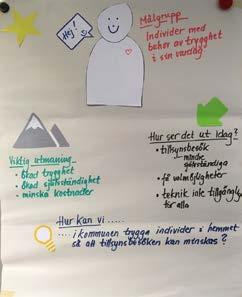 Hej!
Målgrupp
Individer med
behov av trygghet
i sin vardag
Viktig utmaning
• Ökad trygghet
• Ökad självständighet
• minska kostnader
Hur ser det ut idag?
• tillsynsbesök
mindre
självständiga
• få valmöjligheter
• teknik inte tillgänglig
för alla
Hur kan vi .....
.... i kommunen trygga individer i hemmet
så att tillsynsbesöken kan minskas?